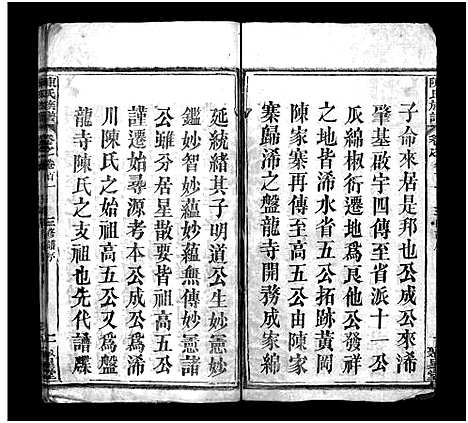 子命來居是邦也公成公來浠
肇基啟宇四傳至省派十一公
瓜綿椒衍遷地爲良他公發祥
之地皆浠水省五公拓跡黃岡
陳家寨再傳至高五公由陳家
寨歸浠盤龍寺開務成家綿
延統緒其子明道公生妙憲妙
鑑妙智妙蘊妙蘊無傳妙憲諸
公雖分居星散要皆祖高五公
謹遷始尋源考本公成公爲浠
川陳氏之始祖高五公又爲盤
龍寺陳氏之支祖也先代譜牒
陳氏族譜
卷首
三修譜序